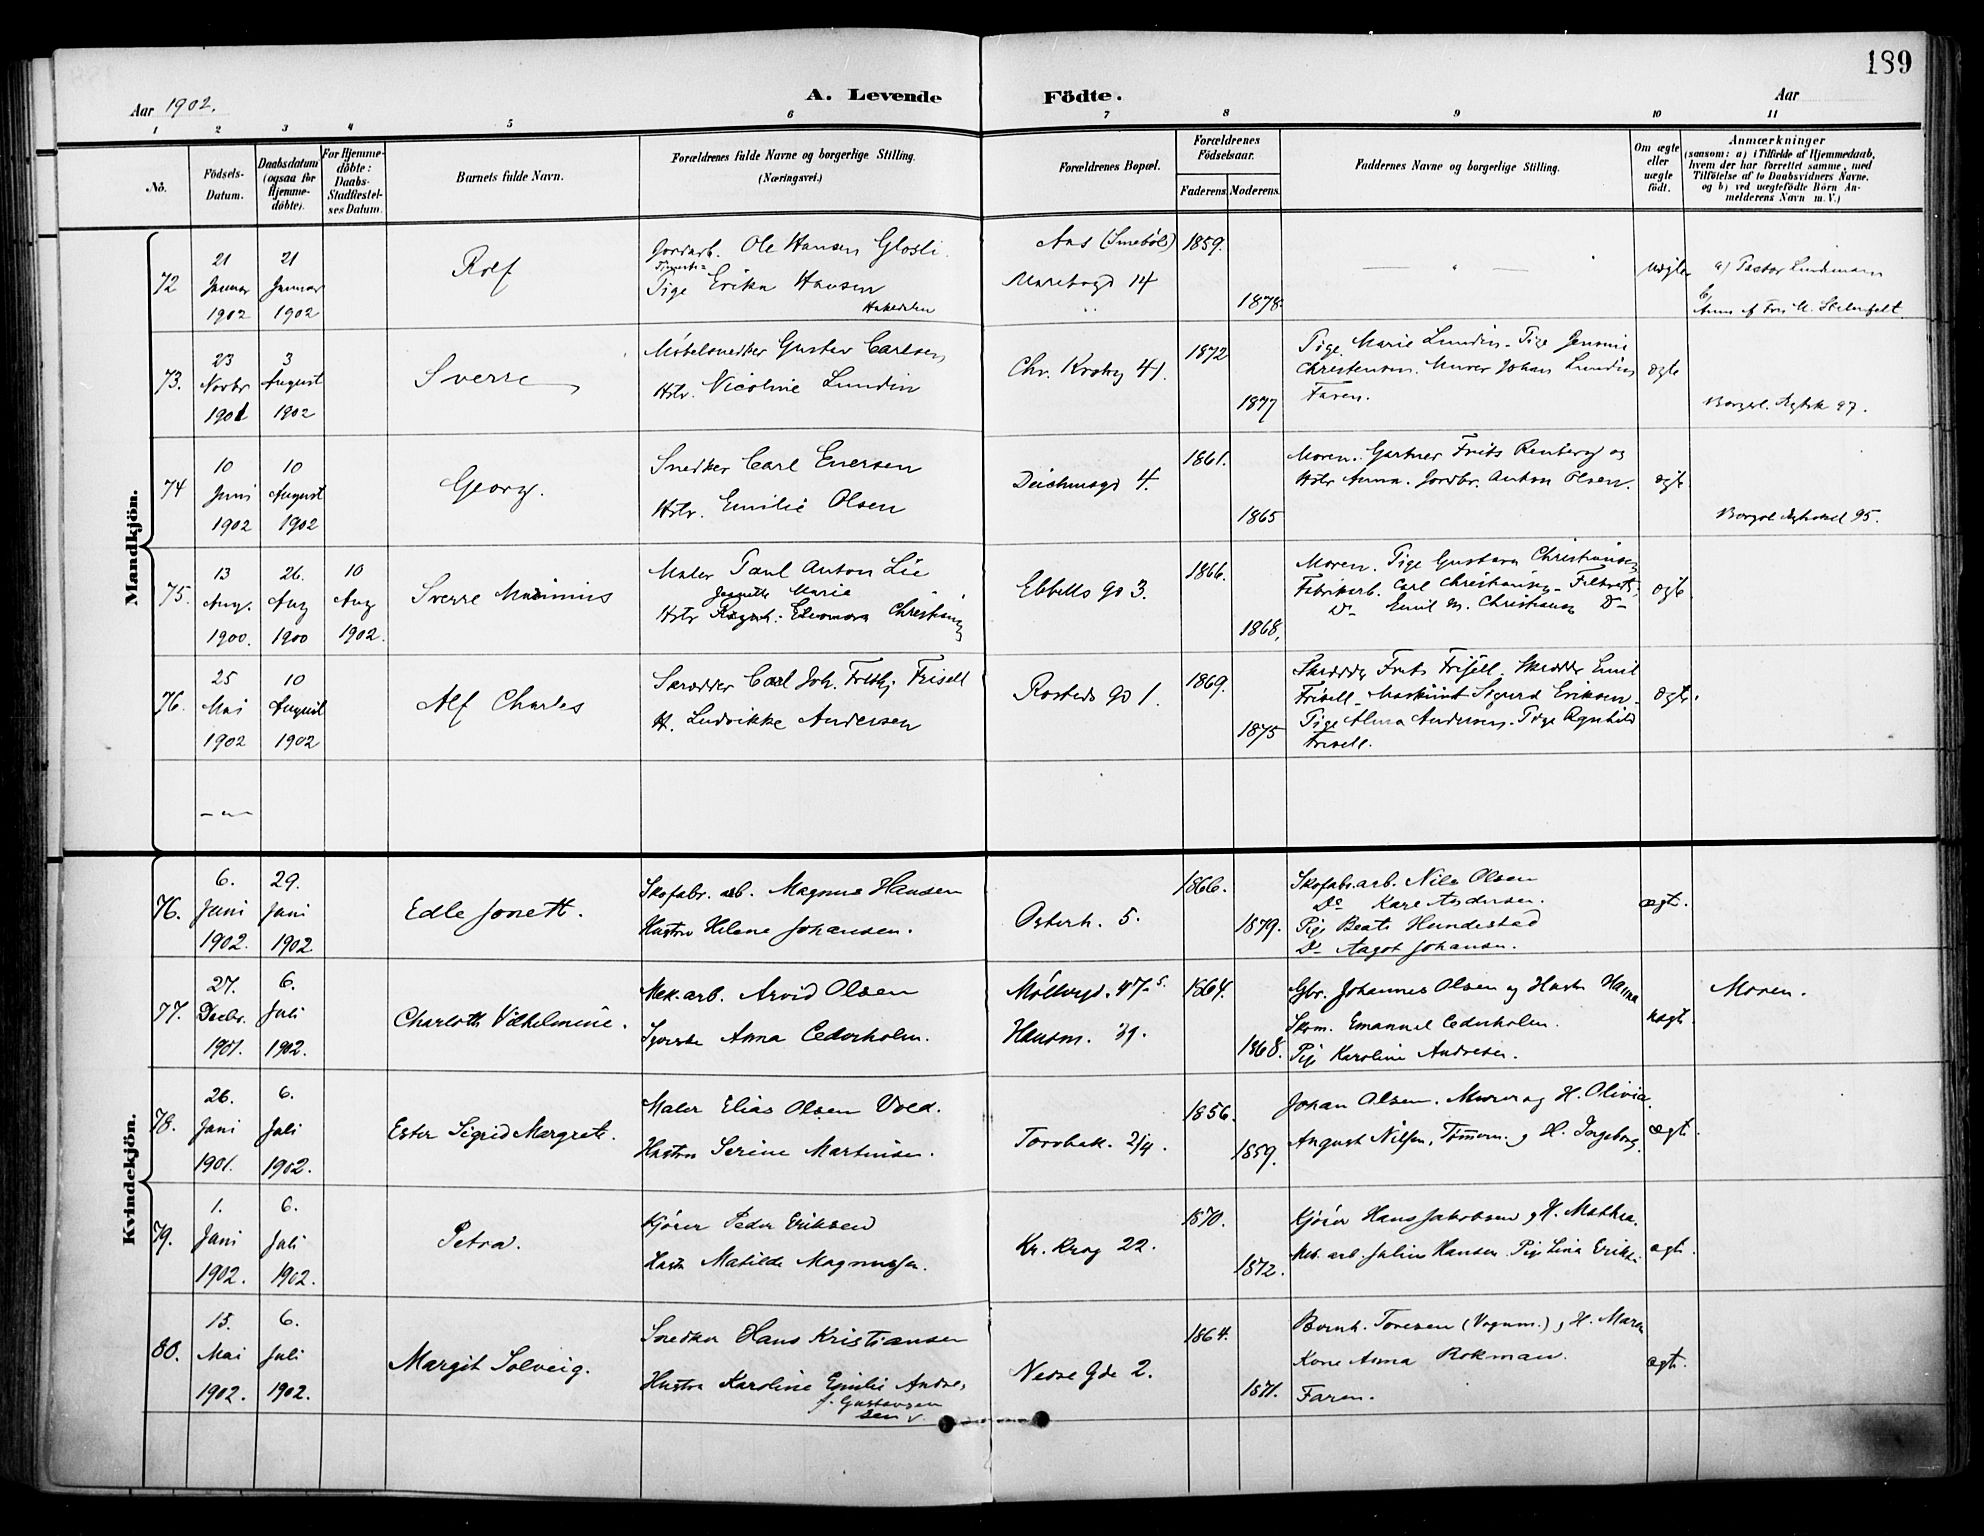 189
Aar 1902.
A. Levende Födte.
Aar
1 2 3 4 5 6 7 8 9 10 11
No.
Födsels-Datum.
Daabsdatum (ogsaa for Hjemme-döbte).
For Hjemme-döbte: Daabs-Stadfæstel-ses Datum.
Barnets fulde Navn.
Forældrenes fulde Navne og borgerlige Stilling.
(Næringsvei.)
Forældrenes Bopæl.
Forældrenes Födselsaar.
Faderens. Moderens.
Faddernes Navne og borgerlige Stilling.
Om ægte eller uægte födt.
Anmærkninger
(saasom: a) i Tilfælde af Hjemmedaab,
hvem der har forrettet samme, med
Tilföielse af to Daabsvidners Navne.
og b) ved uegtefödte Börn An-
melderens Navn m. V.)
Mandkjön.
72 21 Januar 1902 21 Januar 1902
Rolf
Jordarb. Ole Hansen Glosli
Tige Erika Hansen
Aas (Smebøl)
14
1859.
1878
uægte
a) Pastor Lindemann
73. 23 Novbr 1901 3 August 1902
Sverre
Møbelsnedker Gustav Carlsen
Hstr. Nicoline Lundin
Chr. Krohg 41.
1872
1877
Pige Marie Lundin. Pige
Christensen. Murer Johan Lundin
Faren.
ægte
Borgerl. 97.
74 10 Juni 1902 10 August 1902
Georg.
Snedker Carl Enersen
Hstr. Emilie Olsen
Deichmsgd 4.
1861.
1865
Moren. Gartner Frits Renberg og
Hstr Anna. Jordbr. Anton Olsen.
ægte
95.
75. 13 Aug. 1900. 26. Aug 1900 10 Aug 1902.
Sverre Maximius
Maler Paul Anton Lie
Jeanette Marie
Hstr Ragnh. Eleonora Christiansen
Ebbells gd 3.
1866.
1868.
Moren. Pige Gustava Christiansen
Fabrikarb. Carl Christiansen
Do Emil M. Christiansen Do
ægte
76. 25 Mai 1902 10 August 1902
Alf Charles
Skrædder Carl Joh. Fridtj. Frisell
H. Ludvikke Andersen
Rosteds gd 1.
1869.
1875
Skrædder Frits Frisell. Skrædder Emil
Frisell. Maskinist Sigurd Eriksen.
Pige Alma Andersen. Pige Ragnhild
Frisell.
ægte.
Kvindekjön.
76. 6. Juni 1902. 29. Juni 1902
Edle Jonett.
Skofabr. arb. Magnus Hansen
Hustru Helene Johansen.
Osterh. 5.
1866.
1879.
Skofabr.arb. Nils Olsen
Do Kare Andersen.
Pige Beate Hundestad
Do Aagot Johansen.
ægt.
77. 27. Decbr. 1901. 6. Juli 1902.
Charloth Vilhelmine.
Mek. arb. Arvid Olsen
Syerske Anna Cederholm.
Møllergd. 47 s.
Hausm. 31.
1864.
1868.
Gbr. Johannes Olsen og Hustr Hanna
Skom. Emanuel Cederholm.
Pige Karoline Andresen.
uægt.
Moren.
78. 26. Juni 1901. 6. Juli 1902.
Ester Sigrid Margrete.
Maler Elias Olsen Vold.
Hustru Serine Martinsen.
Torvbak. 2/4.
1856.
1859.
Johan Olsen, Murer og H. Olivia.
August Nilsen, Tømmerm. og H. Ingeborg.
ægt.
79. 1. Juni 1902. 6. Juli 1902.
Petra.
Kjører Peder Eriksen
Hustr Matilde Magnussen.
Kr. Krog 22.
1870.
1872.
Kjører Hans Jakobsen og H. Mathea.
Mek. arb. Julius Hansen. Pige Lina Eriksen
ægt.
80. 15. Mai 1902. 6. Juli 1902.
Margit Solveig.
Snedker Hans Kristiansen
Hustru Karoline Emilie Andre-
f. Gustavsen
sen
Nedre Gde 2.
1864.
1871.
Bernh. Toresen (Vognm.) og H. Maren
Kone Anna Rokman.
Faren.
ægt.